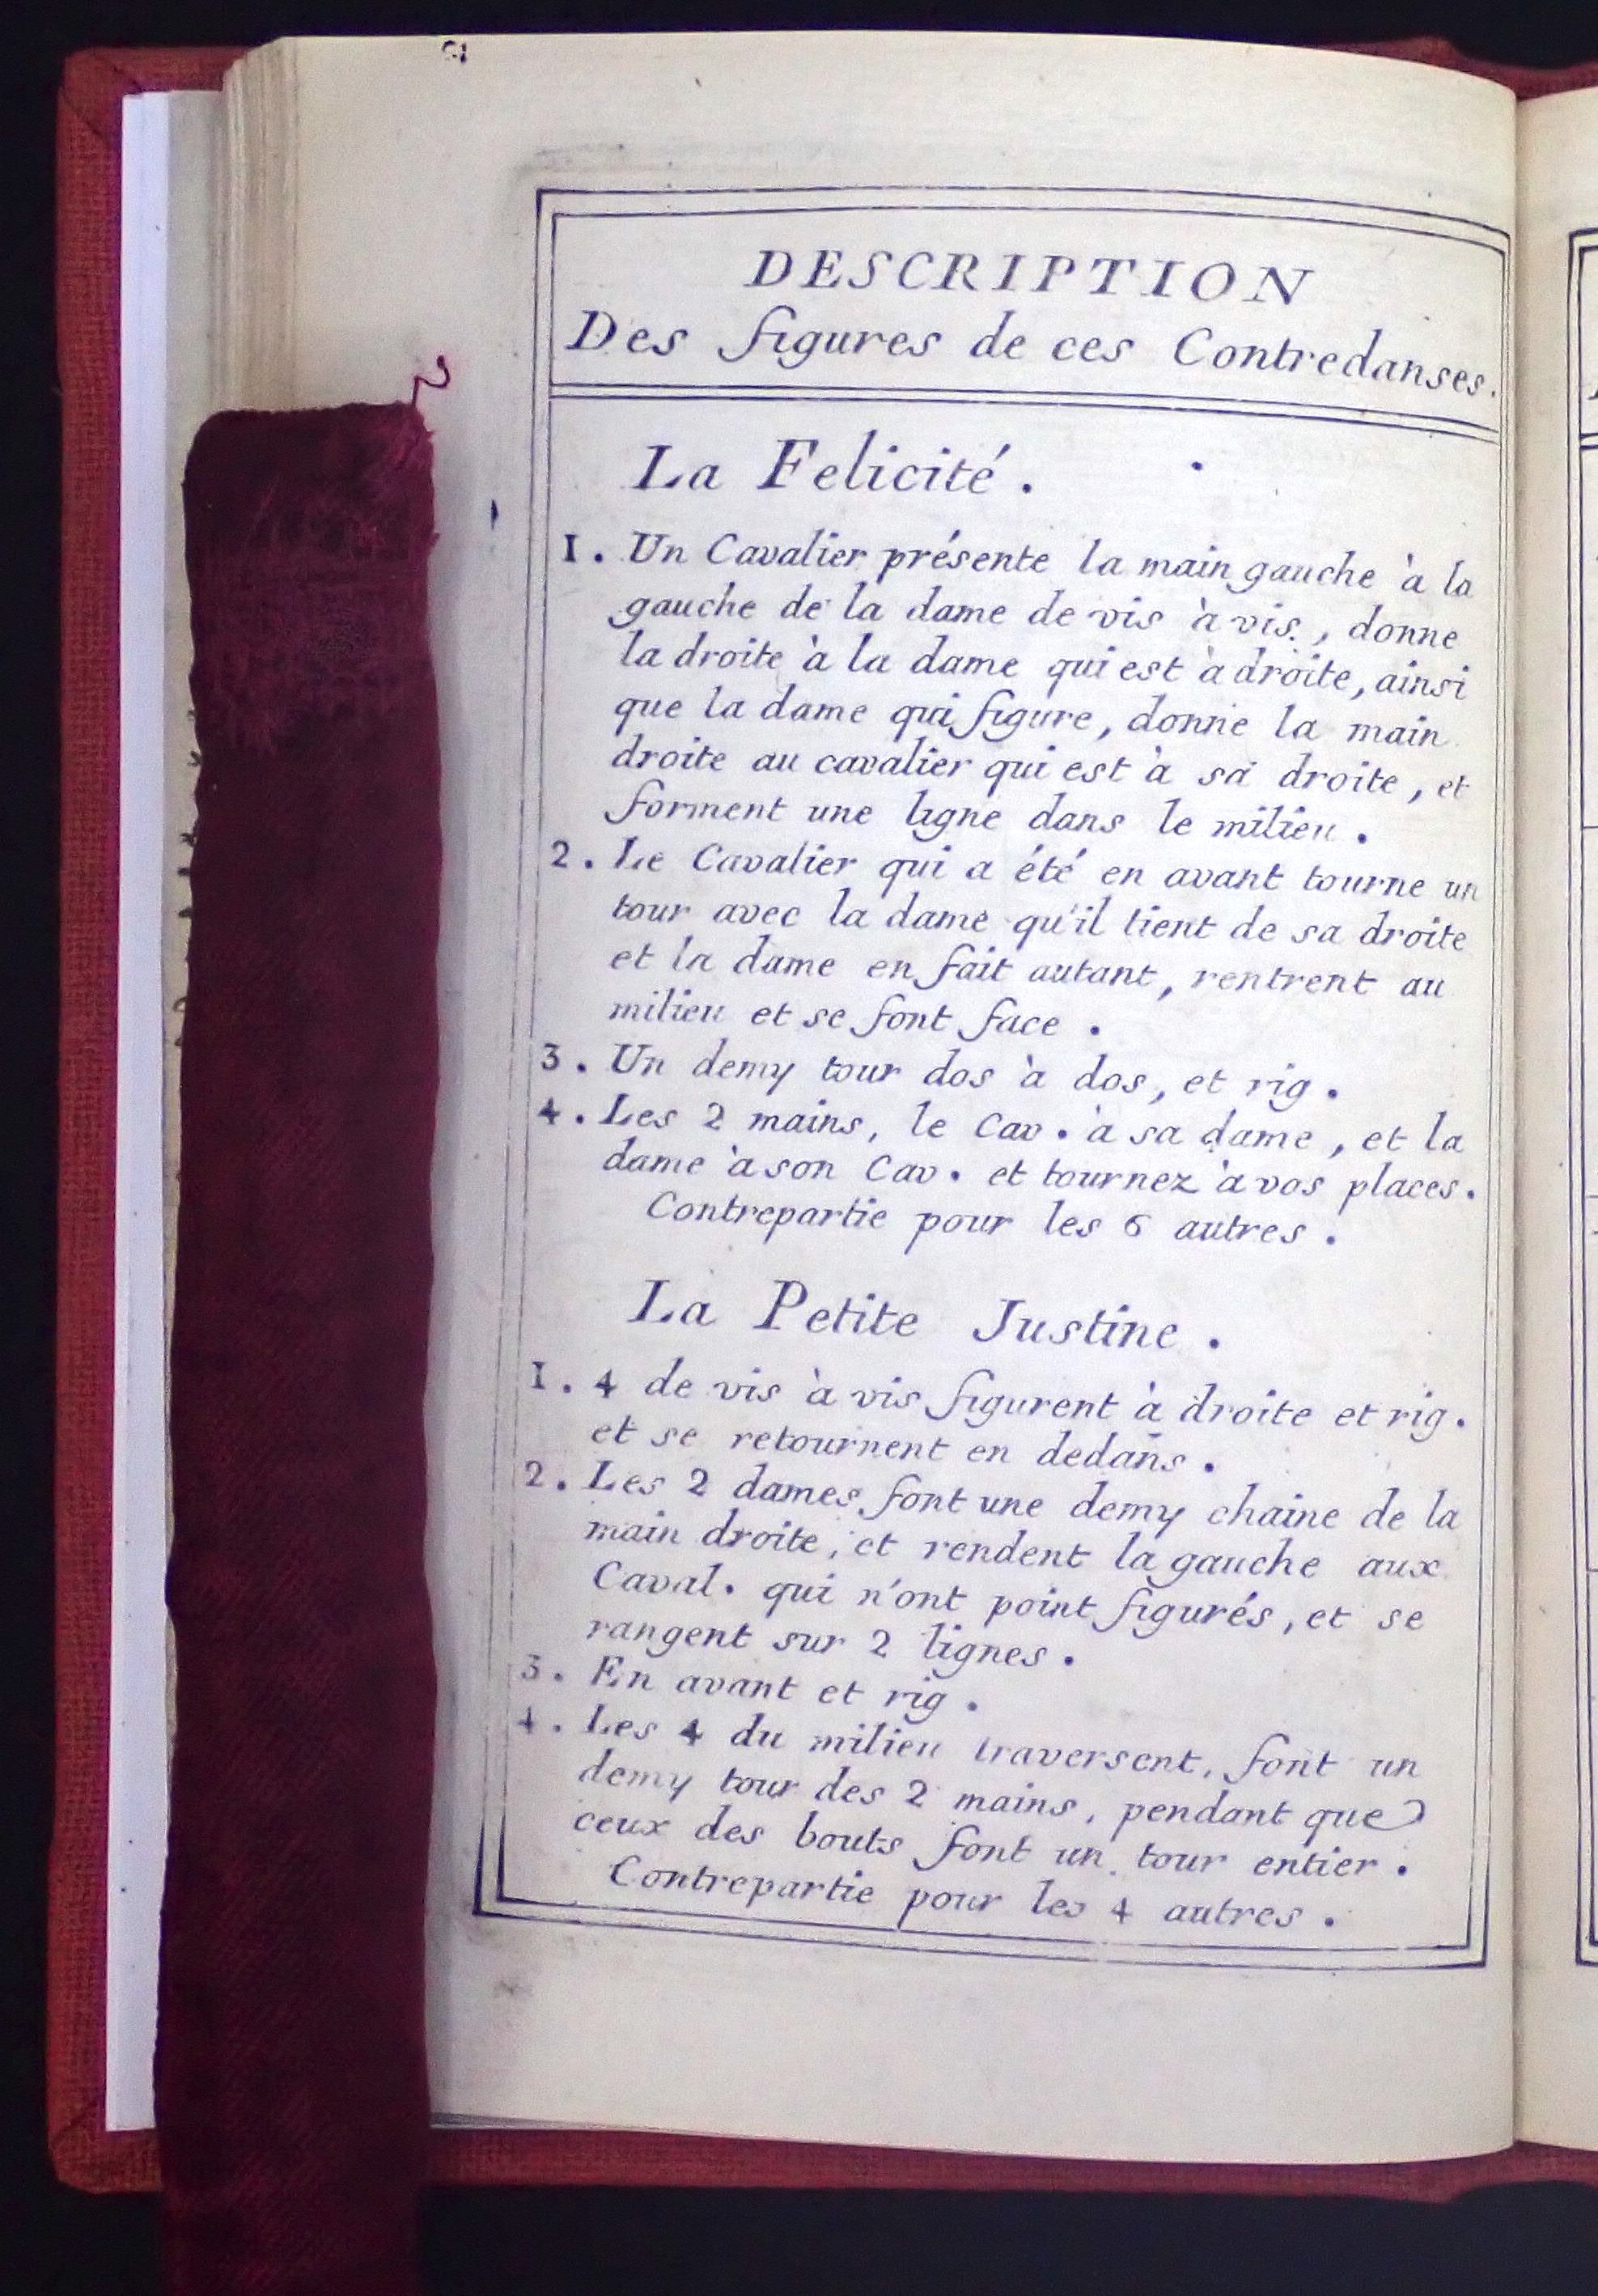 DESCRIPTION
Des figures de ces Contredanses.
La Felicité.
1. Un Cavalier présente la main gauche à la
gauche de la dame de vis à vis, donne
la droite à la dame qui est à droite, ainsi
que la dame qui figure, donne la main
droite au cavalier qui est à sa droite, et
forment une ligne dans le milieu.
2. Le Cavalier qui a été en avant tourne un
tour avec la dame qu'il tient de sa droite
et la dame en fait autant, rentrent au
milieu et se font face.
3. Un demy tour dos à dos, et rig.
4. Les 2 mains, le Cav. à sa dame, et la
dame à son Cav. et tournez à vos places.
Contrepartie pour les 6 autres.
La Petite Justine.
1. 4 de vis à vis figurent à droite et rig.
et se retournent en dedans.
2. Les 2 dames font une demy chaine de la
main droite, et rendent la gauche aux
Caval. qui n'ont point figurés, et se
rangent sur 2 lignes.
3. En avant et rig.
4. Les 4 du milieu traversent, font un
demy tour des 2 mains, pendant que
ceux des bouts font un tour entier.
Contrepartie pour les 4 autres.